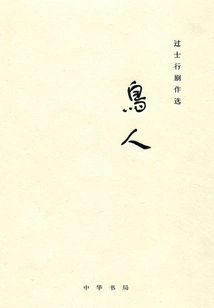 过士行剧作选
鸟人
中华书局